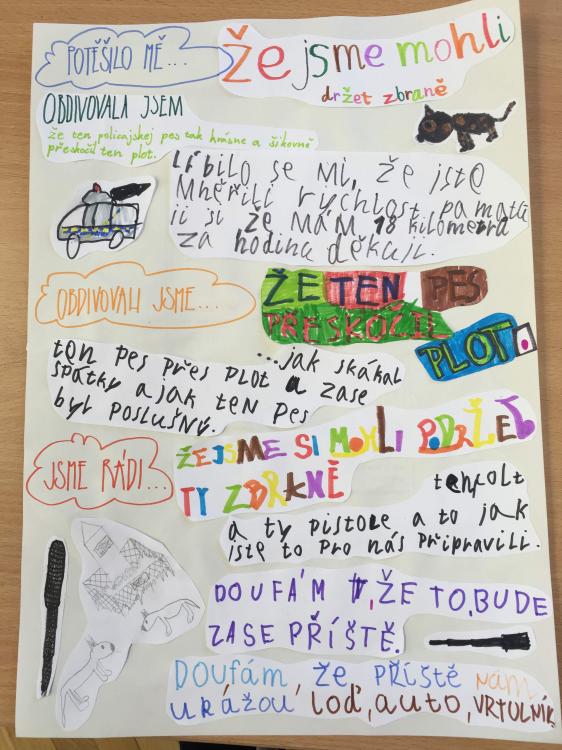 POTĚŠILO MĚ...
že jsme mohli
držet zbraně
OBDIVOVALA JSEM
že ten policajskej pes tak krásně a šikovně
přeskočil ten plot.
Líbilo se mi, že jste
mněřili rychlost pamatu
ji si že mám 18 kilometrů
za hodinu děkuji.
OBDIVOVALI JSME...
ŽE TEN PES
PŘESKOČIL
PLOT
...jak skákal
ton pes přes plot a zase
spátky a jak ten pes
byl poslušný.
JSME RÁDI...
ŽE JSME SI MOHLI PODRŽET
TY ZBRANĚ
ten kolt
a ty pistole a to jak
jste to pro nás připravili.
DOUFÁM, ŽE TO, BUDE
ZASE PŘÍŠTĚ.
DOUFÁM že PŘÍŠTĚ nám
ukážou loď, auto, VRTULNÍK